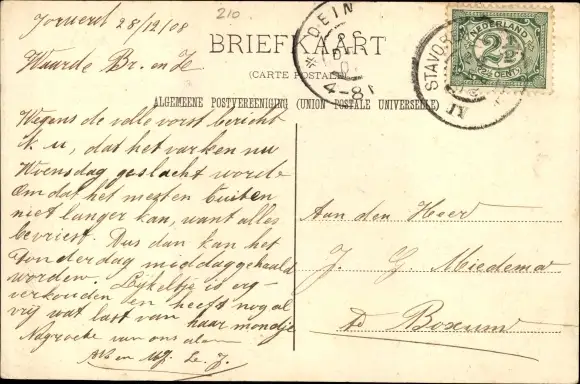 Jorwerd 28/12/08
210
BRIEFKAART
(CARTE POSTALE)
ALGEMEENE POSTVEREENIGING (UNION POSTALE UNIVERSELLE)
DEIN
4-8
STAVOR
NEDERLAND
2½
(2½ CENT)
Waarde Br. en Ze
Wegens de volle vorst bericht
ik u, dat het varken nu
Woensdag geslacht worde
Om dat het mesten buiten
niet langer kan, want alles
bevriest. Dus dan kan het
Donderdag middag gehaald
worden. Lykeltje is erg
verkouden en heeft nog al
vrij wat last van haar mondje
Na groete van ons allen
en
Aan den Heer
J. G. Miedema
Te Boxum